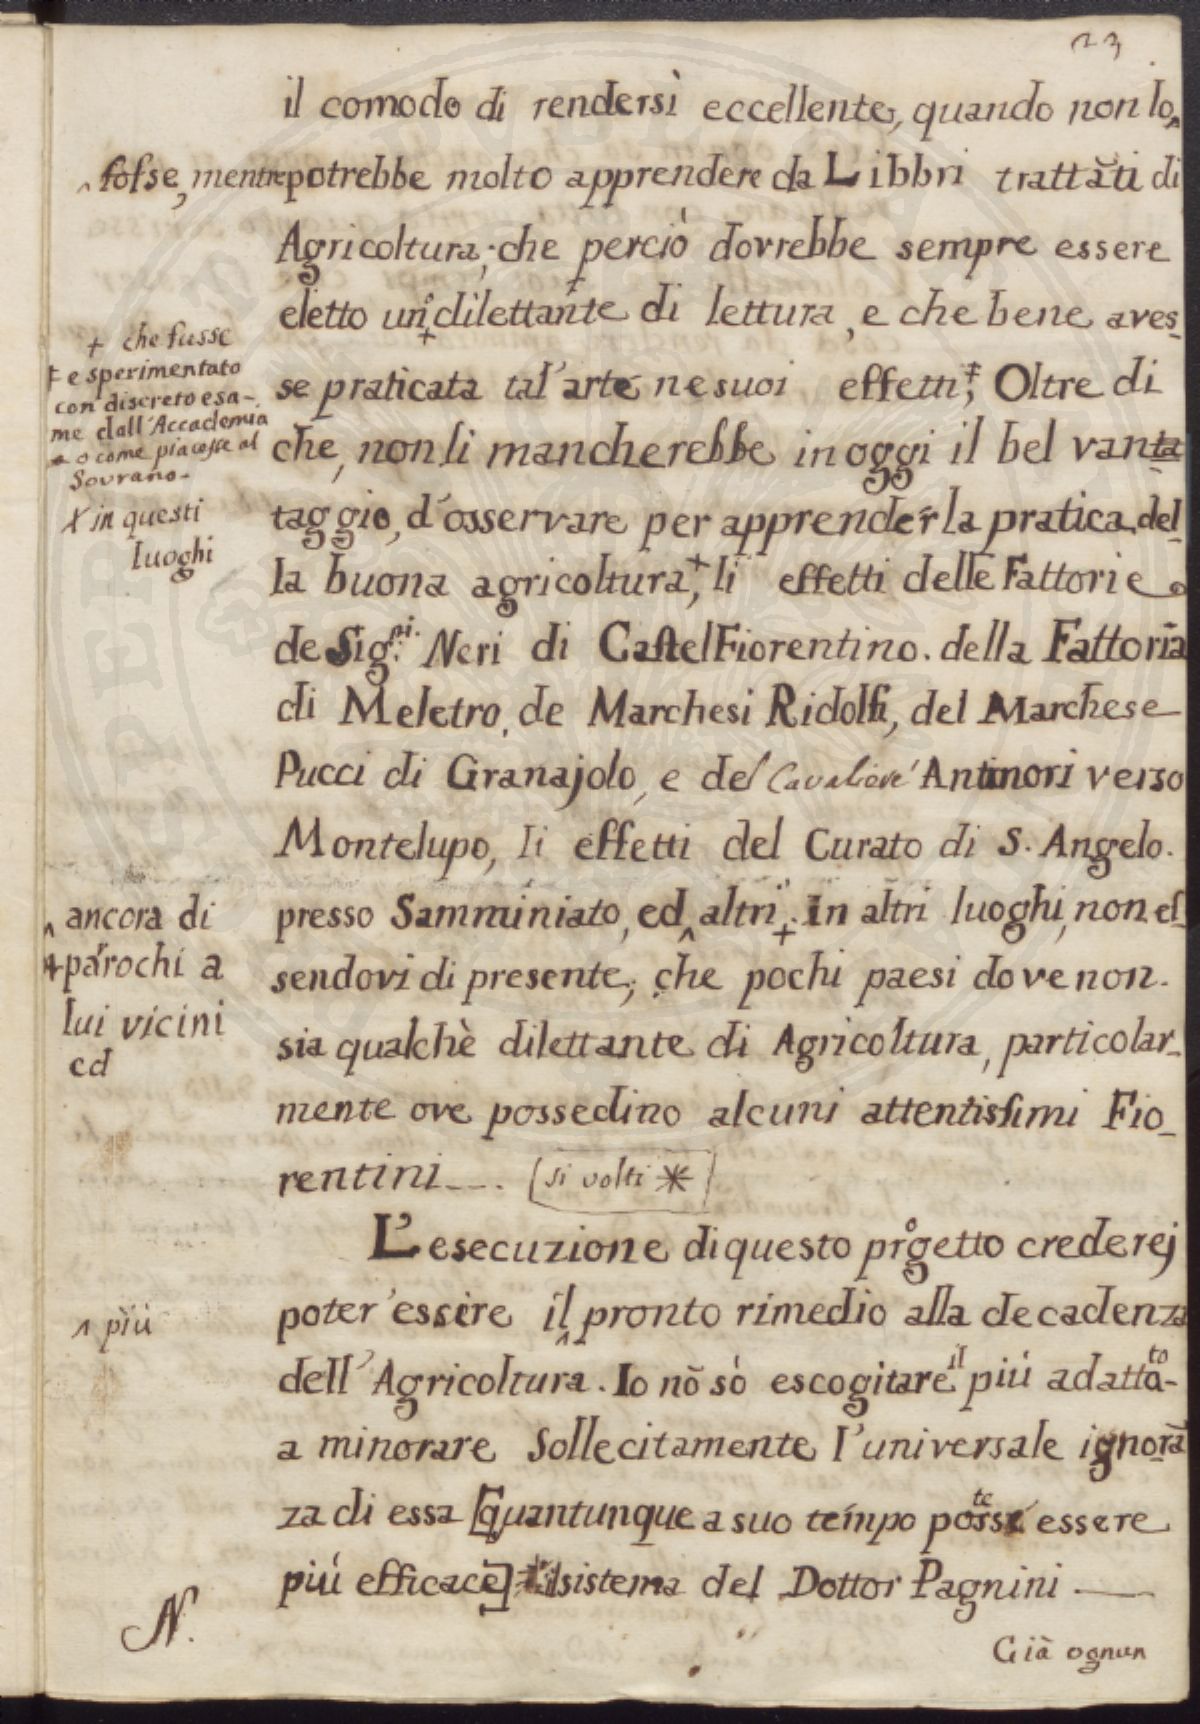 23
il comodo di rendersi eccellente, quando non lo^
^ fosse, mentre potrebbe molto apprendere da Libbri trattati di
Agricoltura; che perciò dovrebbe sempre essere
eletto un dilettante di lettura, e che bene aves-
+ che fusse
‡ e sperimentato
con discreto esa-
me dall'Accademia
o come piacesse al
Sovrano-
se praticata tal'arte ne suoi effetti‡; Oltre di
che, non li mancherebbe in oggi il bel vanta
X in questi
luoghi
taggio, d'osservare per apprender la pratica del-
la buona agricoltura,+ li effetti delle Fattorie
de Sig.ri Neri di Castel Fiorentino. della Fattoria
di Meletro, de Marchesi Ridolfi, del Marchese
Pucci di Granajolo, e del Cavaliere Antinori verso
Montelupo, li effetti del Curato di S. Angelo.
^ ancora di
parochi a
lui vicini
ed
presso Samminiato, ed^ altri. In altri luoghi, non es
sendovi di presente, che pochi paesi dove non.
sia qualchè dilettante di Agricoltura, particolar-
mente ove possedino alcuni attentissimi Fio-
rentini---. [si volti *]
L'esecuzione di questo progetto crederej
^ più
poter'essere il^ pronto rimedio alla decadenza
dell'Agricoltura. Io nõ sò escogitare il più adatto-
a minorare Sollecitamente l'universale ignorã
za di essa [quantunque a suo tempo essere
più efficace] sistema del Dottor Pagnini —
N.
Già ognun